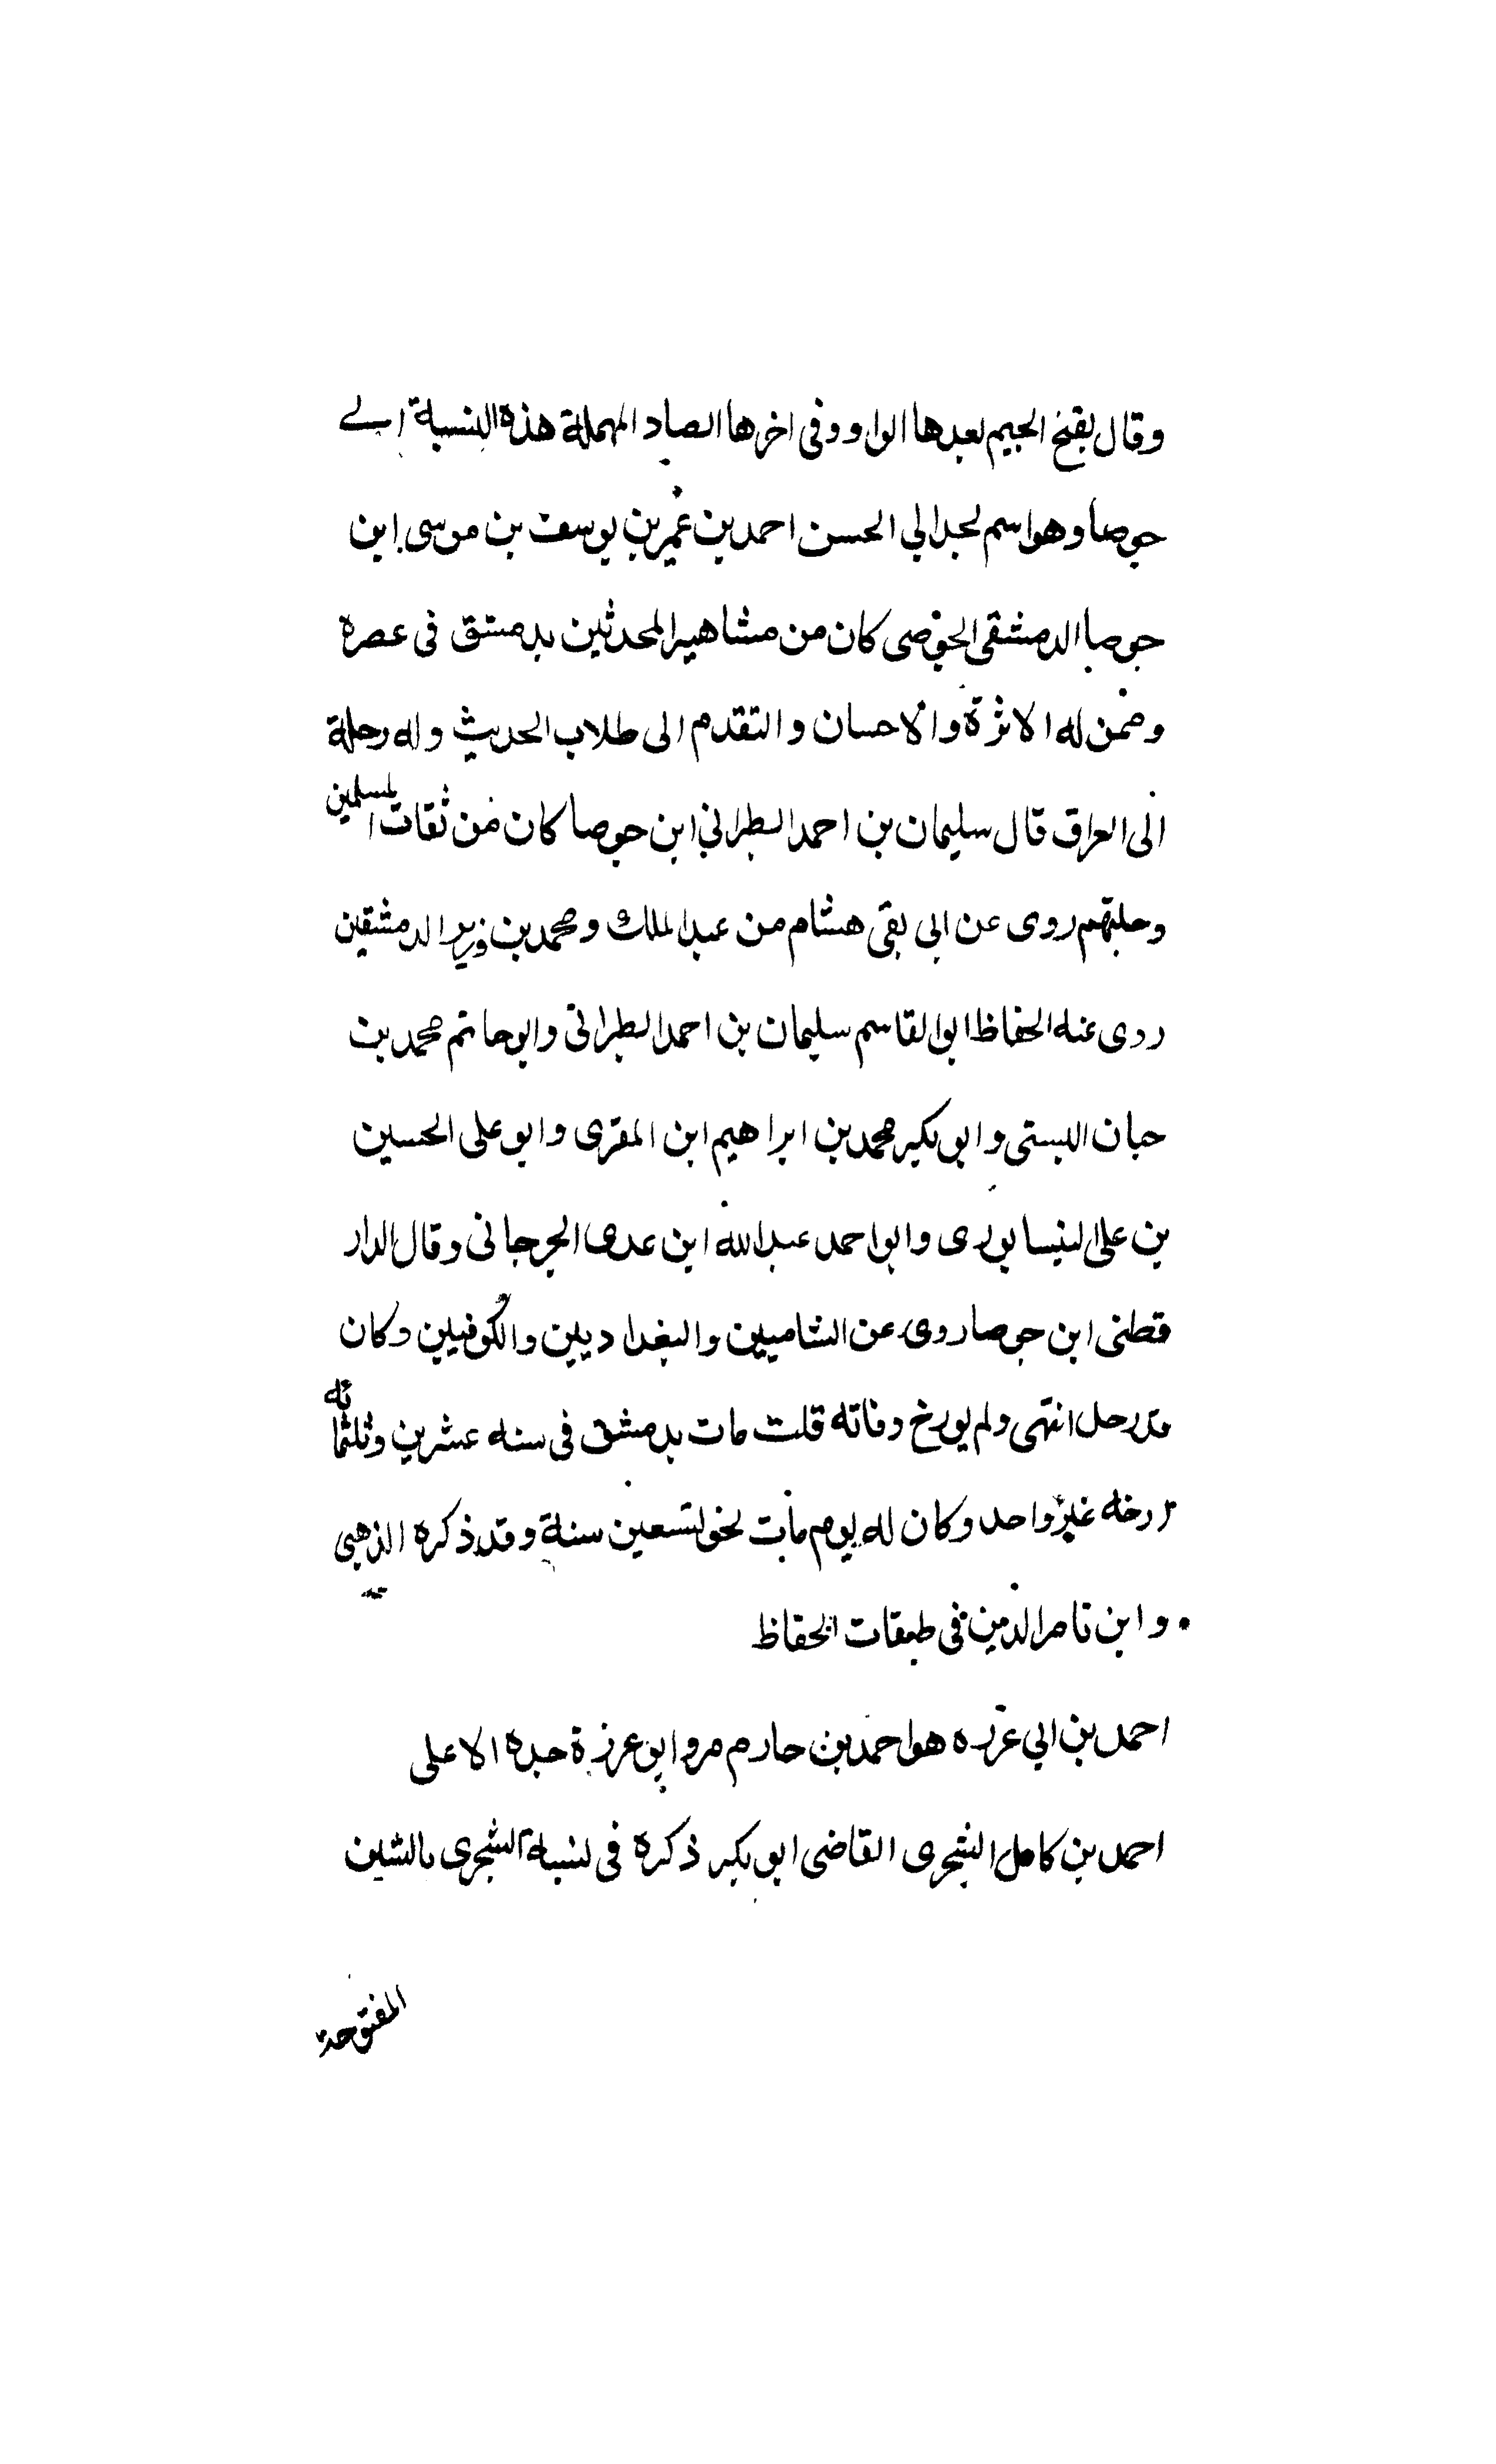 وقال بفتح الجيم بعدها الواو وفى اخرها الصاد المهملة هذه النسبة الى
جوصا وهو اسم لجد ابي الحسن احمد بن عمير بن يوسف بن موسى ابن
جوصا الدمشقى الجوصى كان من مشاهير المحدثين بدمشق فى عصره
وممن له الاثرة والاحسان والتقدم الى طلاب الحديث وله رحلة
الى العراق قال سليمان بن احمد الطبراني ابن جوصا كان من ثقات المسلمين
وجلتهم روى عن ابى بقى هشام من عبد الملك ومحمد بن وزير الدمشقين
روى عنه الحفاظ ابو القاسم سليمان بن احمد الطبرانى وابو حاتم محمد بن
حبان البستى وابو بكر محمد بن ابراهيم ابن المقرى وابو على الحسين
بن على النيسابورى وابو احمد عبد الله ابن عدى الجرجانى وقال الدار
قطنى ابن جوصا روى عن الشاميين والبغداديين والكوفيين وكان
قد رحل انتهى ولم يورخ وفاته قلت مات بدمشق فى سنه عشرين وثلثمائه
ارخه غير واحد وكان له يوم مات نحو تسعين سنة وقد ذكره الذهبى
وابن ناصر الدين فى طبقات الحفاظ
احمد بن ابي غرزه هو احمد بن حازم مر وابو غرزة جده الاعلى
احمد بن كامل الشجرى القاضى ابو بكر ذكره فى نسبة الشجرى بالشين
المفتوحة